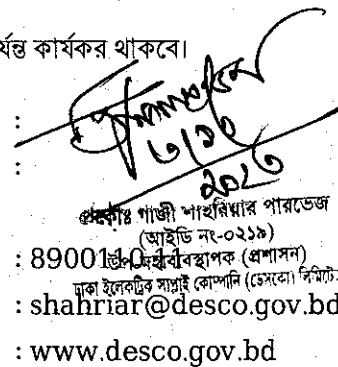 র্যন্ত কার্যকর থাকবে।
:
:
প্রকৌঃ গাজী শাহরিয়ার পারভেজ
(আইডি নং-০২১৯)
: 8900110-11
উপ-মহাব্যবস্থাপক (প্রশাসন)
ঢাকা ইলেকট্রিক সাপ্লাই কোম্পানি (ডেসকো) লিমিটেড
: shahriar@desco.gov.bd
: www.desco.gov.bd